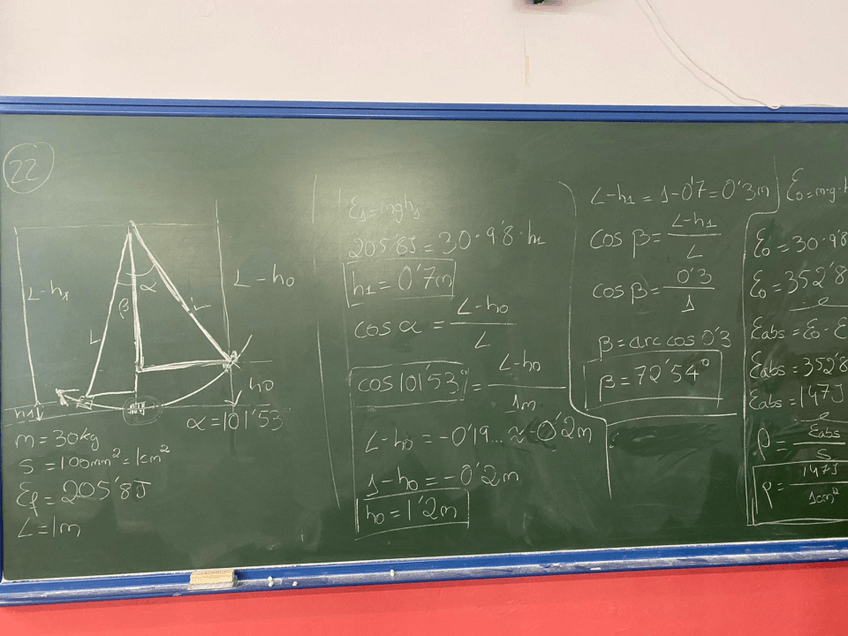 22
L-h₁
β
α
L
L
L-h₀
h₀
h₁
α=101'53
m=30kg
S=100mm²=1cm²
Ef=205'8J
L=1m
E₁=mgh₁
205'8J=30·9'8·h₁
h₁=0'7m
cos α = L-h₀ / L
cos 101'53° = L-h₀ / 1m
L-h₀ = -0'19... ≈ -0'2m
1-h₀ = -0'2m
h₀=1'2m
L-h₁ = 1-0'7=0'3m
cos β = L-h₁ / L
cos β = 0'3 / 1
β=arc cos 0'3
β=72'54°
E₀=m·g·h
E₀=30·9'8
E₀=352'8
Eabs=E₀-E
Eabs=352'8
Eabs=147J
ρ= Eabs / S
ρ= 147J / 1cm²